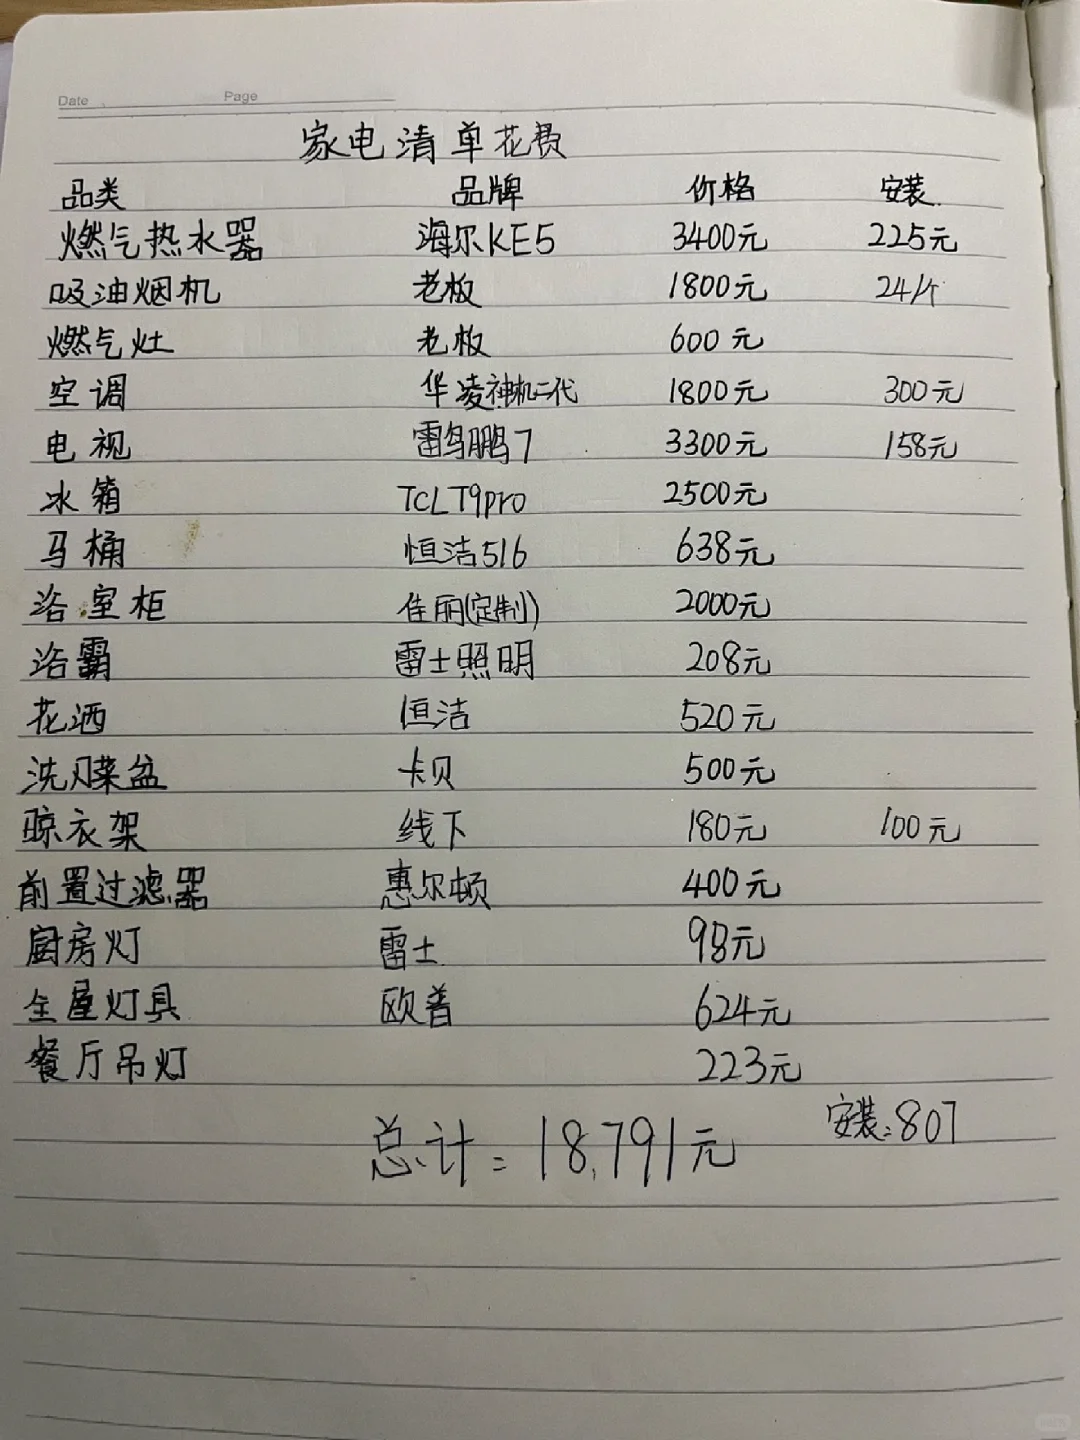 Date Page
家电清单花费
品类 品牌 价格 安装
燃气热水器 海尔KE5 3400元 225元
吸油烟机 老板 1800元 24/个
燃气灶 老板 600元
空调 华凌神机二代 1800元 300元
电视 雷鸟鹏7 3300元 158元
冰箱 TCLT9pro 2500元
马桶 恒洁516 638元
浴室柜 佳丽(定制) 2000元
浴霸 雷士照明 208元
花洒 恒洁 520元
洗菜盆 卡贝 500元
晾衣架 线下 180元 100元
前置过滤器 惠尔顿 400元
厨房灯 雷士 98元
全屋灯具 欧普 624元
餐厅吊灯 223元
安装:807
总计=18,791元